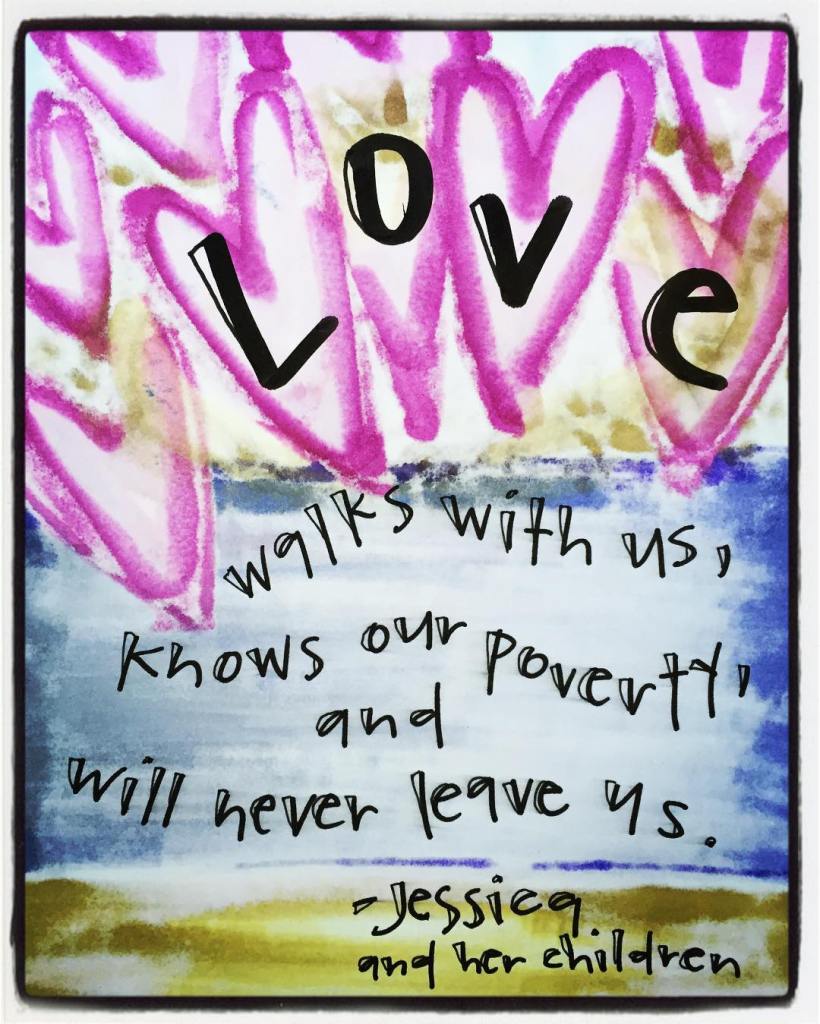 Love
walks with us,
knows our poverty,
and
will never leave us.
-Jessica
and her children